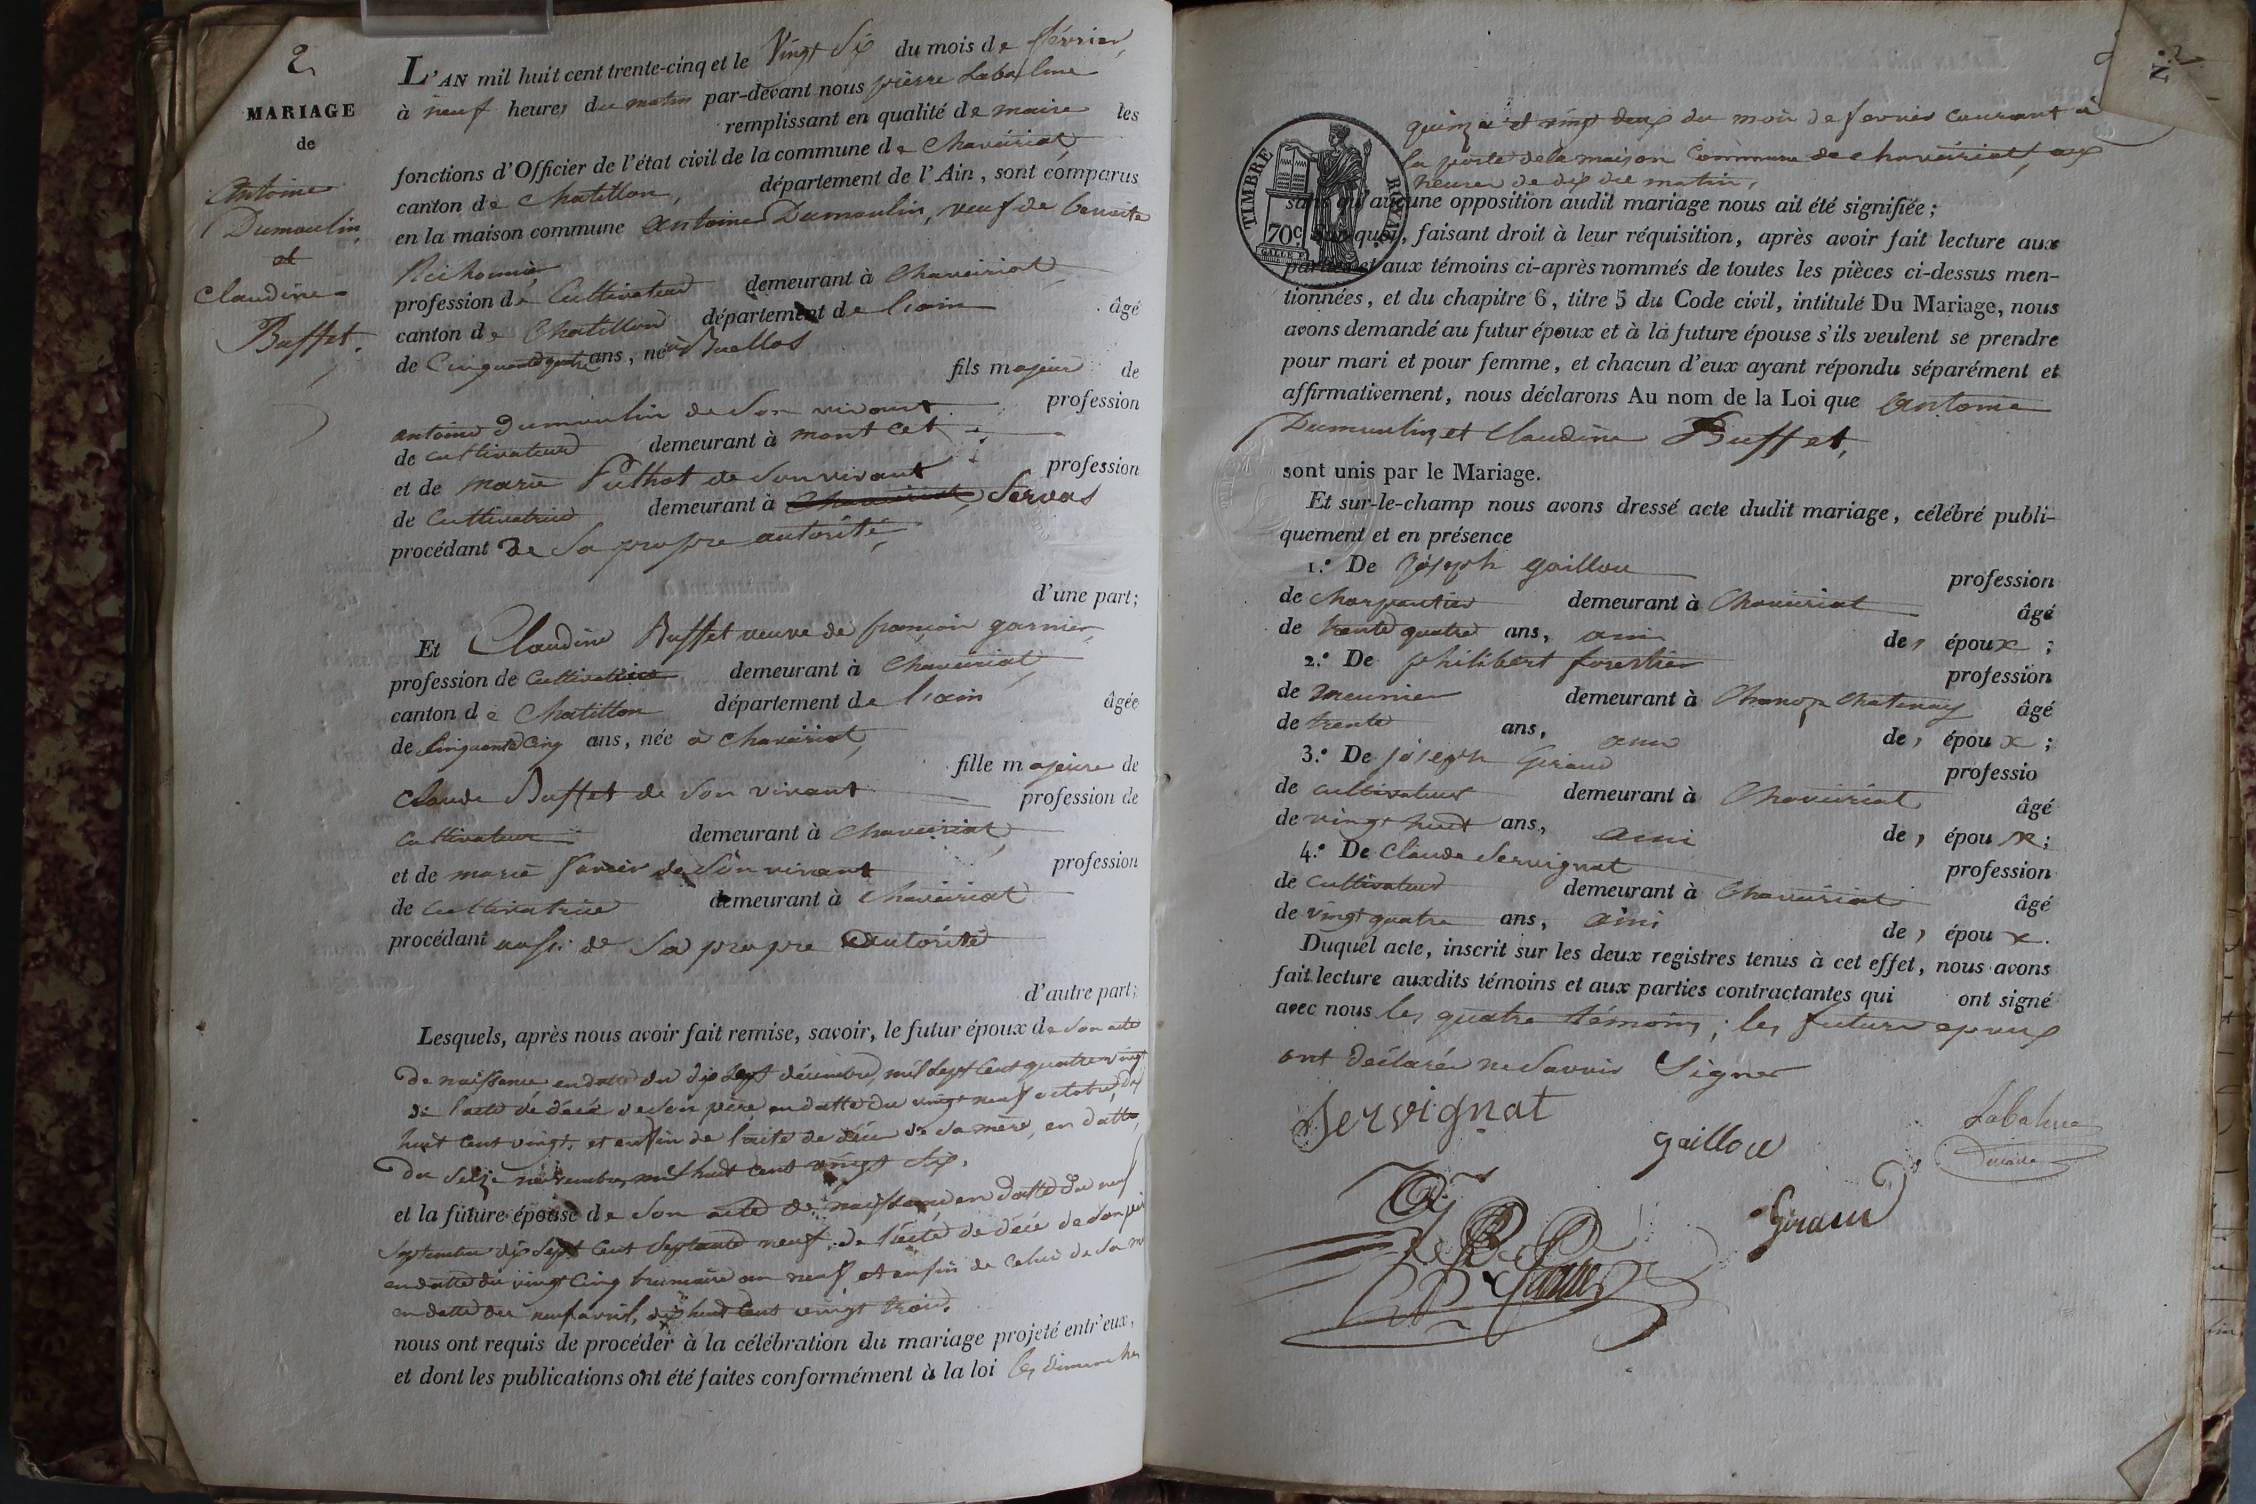 2
MARIAGE
de
Antoine
Dumoulin
et
Claudine
Buffet.
L'AN mil huit cent trente-cinq et le Vingt Six du mois de février,
à neuf heures du matin par-devant nous pierre Labalme
remplissant en qualité de maire les
fonctions d'Officier de l'état civil de la commune de Chaveiriat,
canton de Chatillon, département de l'Ain, sont comparus
en la maison commune Antoine Dumoulin, veuf de benoite
profession de Cultivateur demeurant à Chaveiriat
canton de Chatillon département de l'ain âgé
de Cinquante quatre ans, né à Buellas
fils majeur de
antoine Dumoulin de Son vivant profession
de cultivateur demeurant à mont cet
et de marie Puthot de Son vivant profession
de Cultivatrice demeurant à Chaveiriat, Servas
procédant de Sa propre autorité,
d'une part;
Et Claudine Buffet veuve de françois garnier,
profession de Cultivatrice demeurant à Chaveiriat,
canton de Chatillon département de l'ain âgée
de Cinquante Cinq ans, née à Chaveiriat,
fille majeure de
Claude Buffet de Son vivant profession de
Cultivateur demeurant à Chaveiriat,
et de marie de Son vivant profession
de Cultivatrice demeurant à Chaveiriat
procédant aussi de Sa propre autorité
d'autre part;
Lesquels, après nous avoir fait remise, savoir, le futur époux de Son acte
De naissance en datte du dix Sept décembre, mil Sept Cent quatre vingt
de l'acte de décé de Son père en datte du vingt neuf octobre, dix
huit Cent vingt, et enfin de l'acte de décé de Sa mère, en datte,
du Seize novembre, mil huit Cent vingt Six.
et la future épouse de Son acte de naissance en datte du neuf
Septembre dix Sept Cent Septante neuf, de l'acte de décé de Son père
en datte du vingt Cinq brumaire an neuf et enfin de Celui de Sa
en datte du neuf avril, dix huit Cent vingt trois.
nous ont requis de procéder à la célébration du mariage projeté entr'eux,
et dont les publications ont été faites conformément à la loi les dimanches
N. 2
TIMBRE ROYAL
70c.
quinze et vingt deux du mois de fevrier Courant à
la porte de la maison Commune de Chaveiriat, aux
heures de dix du matin,
sans qu'aucune opposition audit mariage nous ait été signifiée;
quoi, faisant droit à leur réquisition, après avoir fait lecture aux
parties et aux témoins ci-après nommés de toutes les pièces ci-dessus men-
tionnées, et du chapitre 6, titre 5 du Code civil, intitulé Du Mariage, nous
avons demandé au futur époux et à la future épouse s'ils veulent se prendre
pour mari et pour femme, et chacun d'eux ayant répondu séparément et
affirmativement, nous déclarons Au nom de la Loi que Antoine
Dumoulin, et Claudine Buffet,
sont unis par le Mariage.
Et sur-le-champ nous avons dressé acte dudit mariage, célébré publi-
quement et en présence
1.° De Joseph gaillou profession
de charpentier demeurant à Chaveiriat âgé
de trente quatre ans, ami de, époux;
2.° De philibert forestier profession
de meunier demeurant à Chanoz Chatenay âgé
de trente ans, ami de, époux;
3.° De Joseph Giraud professio
de cultivateur demeurant à Chaveiriat âgé
de vingt huit ans, ami de, époux;
4.° De Claude Servignat profession
de Cultivateur demeurant à Chaveiriat âgé
de vingt quatre ans, ami de, époux.
Duquel acte, inscrit sur les deux registres tenus à cet effet, nous avons
fait lecture auxdits témoins et aux parties contractantes qui ont signé
avec nous les quatre témoins; les future epoux
ont déclarée ne Savoir Signer
Servignat
gaillou
Labalme
Giraud